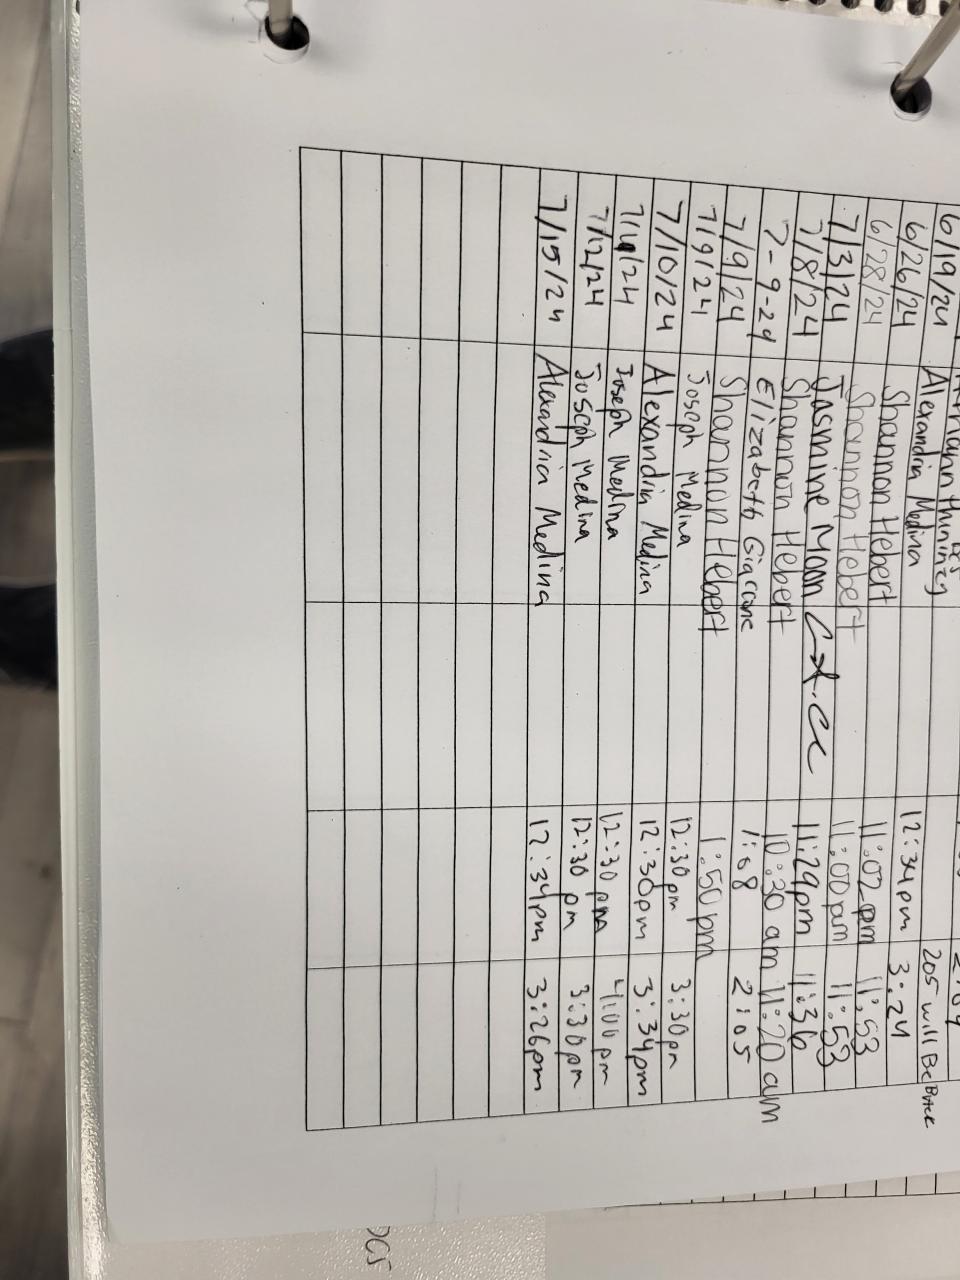 205 will Be Back
6/19/24 Alexandria Medina 12:34pm 3:24
6/26/24 Shannon Hebert 11:02pm 11:53
6/28/24 Shannon Hebert 11:00pm 11:53
7/3/24 Jasmine Moon 11:29pm 11:36
7/8/24 Shannon Hebert 10:30 am 11:20 am
7-9-24 Elizabeth Giaccone 1:08 2:05
7/9/24 Shannon Hebert 1:50pm
7/9/24 Joseph Medina 12:30pm 3:30pm
7/10/24 Alexandria Medina 12:30pm 3:34pm
7/11/24 Joseph Medina 12:30pm 4:00pm
7/12/24 Joseph Medina 12:30 pm 3:30pm
7/15/24 Alexandria Medina 12:34pm 3:26pm